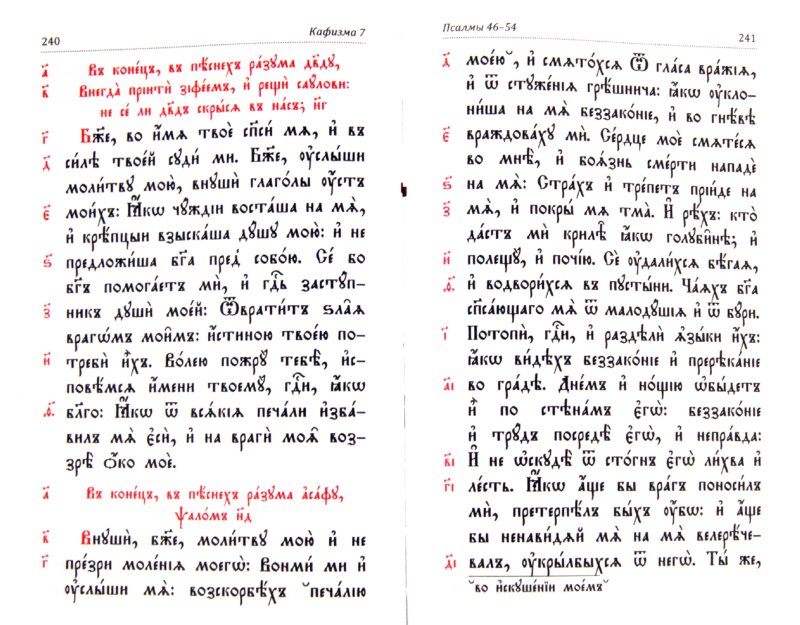 240
Кафизма 7
а҃ Въ коне́цъ, въ пѣ́снехъ ра́зума дв҃ду,
в҃ Внегда̀ прїитѝ зїфе́емъ, и҆ рещѝ саꙋ́лови:
не се́ ли дв҃дъ скры́сѧ въ на́съ; н҃г
г҃ Бж҃е, во и҆́мѧ твоѐ сп҃си́ мѧ, и҆ въ
д҃ си́лѣ твое́й сꙋди́ ми. Бж҃е, ᲂу҆слы́ши
моли́твꙋ мою̀, внꙋшѝ глаго́лы ᲂу҆́стъ
є҃ мои́хъ: Ꙗ҆́кѡ чꙋ́ждїи воста́ша на мѧ̀,
и҆ крѣ́пцыи взыска́ша дꙋ́шꙋ мою̀: и҆ не
ѕ҃ предложи́ша бг҃а пред̾ собо́ю. Се́ бо
бг҃ъ помога́етъ мѝ, и҆ гдⷭ҇ь застꙋ́п-
з҃ никъ дꙋшѝ мое́й: Ѿврати́тъ ѕла̑ѧ
врагѡ́мъ мои̑мъ: и҆́стиною твое́ю по-
и҃ требѝ и҆̀хъ. Во́лею пожрꙋ̀ тебѣ̀, и҆с-
повѣ́мсѧ и҆́мени твоемꙋ̀, гдⷭ҇и, ꙗ҆́кѡ
ѳ҃ бл҃го: Ꙗ҆́кѡ ѿ всѧ́кїѧ печа́ли и҆зба́-
вилъ мѧ̀ є҆сѝ, и҆ на врагѝ моѧ̑ воз-
зрѣ̀ ѻ҆́ко моѐ.
а҃ Въ коне́цъ, въ пѣ́снехъ ра́зума а҆са́фꙋ,
ѱало́мъ н҃д
в҃ Внꙋшѝ, бж҃е, моли́твꙋ мою̀ и҆ не
г҃ пре́зри моле́нїѧ моегѡ̀: Вонми́ ми и҆
ᲂу҆слы́ши мѧ̀: возскорбѣ́хъ ˘печа́лїю
Псалмы 46–54
241
д҃ мое́ю˘, и҆ смѧто́хсѧ Ѿ гла́са вра́жїѧ,
и҆ ѿ стꙋже́нїѧ грѣ́шнича: ꙗ҆́кѡ ᲂу҆кло-
ни́ша на мѧ̀ беззако́нїе, и҆ во гнѣ́вѣ
є҃ враждова́хꙋ мѝ. Се́рдце моѐ смѧте́сѧ
во мнѣ̀, и҆ боѧ́знь сме́рти нападѐ
ѕ҃ на мѧ̀: Стра́хъ и҆ тре́петъ прїи́де на
з҃ мѧ̀, и҆ покры́ мѧ тма̀. И҆ рѣ́хъ: кто̀
да́стъ мѝ крилѣ̑ ꙗ҆́кѡ голꙋби̑нѣ; и҆
и҃ полещꙋ̀, и҆ почі́ю. Сѐ ᲂу҆дали́хсѧ бѣ́гаѧ,
ѳ҃ и҆ водвори́хсѧ въ пꙋсты́ни. Ча́ѧхъ бг҃а
сп҃са́ющаго мѧ̀ ѿ малодꙋ́шїѧ и҆ ѿ бꙋ́ри.
і҃ Потопѝ, гдⷭ҇и, и҆ раздѣлѝ ѧ҆зы́ки и҆́хъ:
ꙗ҆́кѡ ви́дѣхъ беззако́нїе и҆ пререка́нїе
а҃і во гра́дѣ. Дне́мъ и҆ но́щїю ѡ҆бы́детъ
и҆̀ по стѣна́мъ є҆гѡ̀: беззако́нїе
и҆ трꙋ́дъ посредѣ̀ є҆гѡ̀, и҆ непра́вда:
в҃і И҆ не ѡ҆скꙋдѣ̀ ѿ сто́гнъ є҆гѡ̀ ли́хва и҆
г҃і ле́сть. Ꙗ҆́кѡ а҆́ще бы вра́гъ поноси́лъ
мѝ, претерпѣ́лъ бы́хъ ᲂу҆́бо: и҆ а҆́ще
бы ненави́дѧй мѧ̀ на мѧ̀ велерѣ́че-
д҃і валъ, ᲂу҆кры́лбыхсѧ ѿ негѡ̀. Ты́ же,
˘во и҆скꙋше́нїи мое́мъ˘